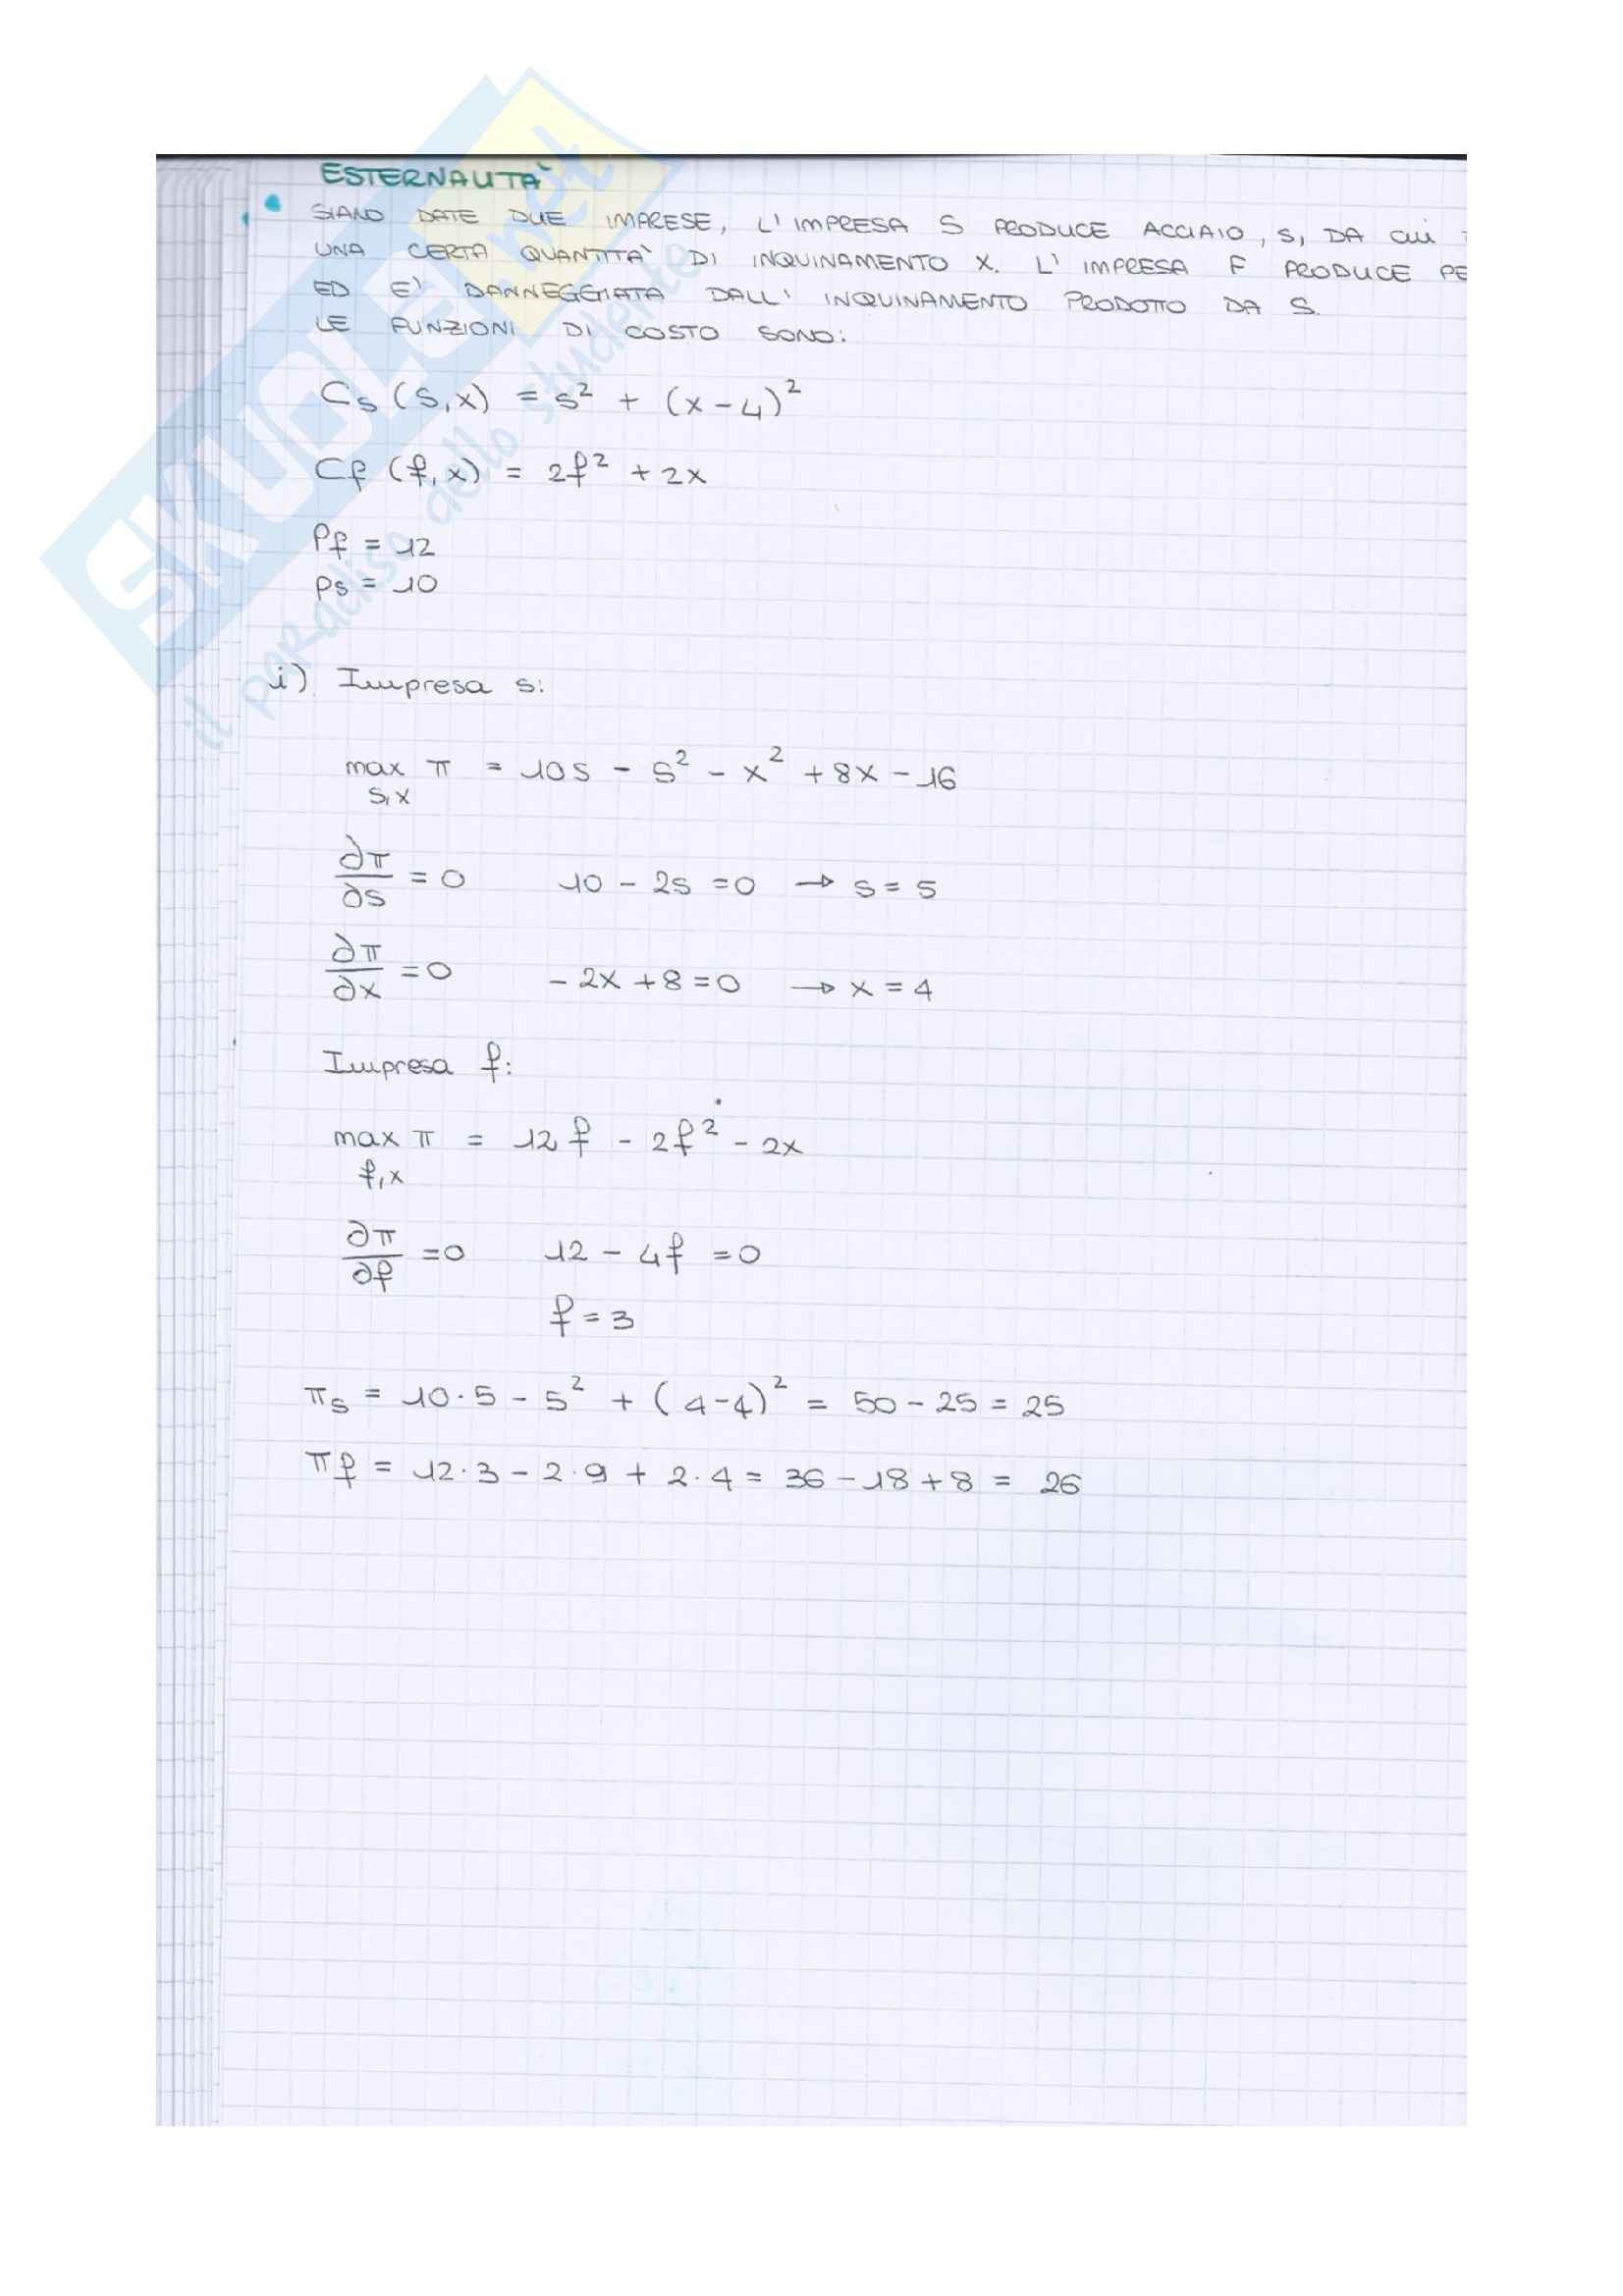 ESTERNALITÀ
SIANO DATE DUE IMPRESE, L'IMPRESA S PRODUCE ACCIAIO, S, DA CUI
UNA CERTA QUANTITA' DI INQUINAMENTO X. L'IMPRESA F PRODUCE PE
ED E' DANNEGGIATA DALL'INQUINAMENTO PRODOTTO DA S.
LE FUNZIONI DI COSTO SONO:
Cs (s,x) = s² + (x-4)²
Cf (f,x) = 2f² + 2x
Pf = 12
ps = 10
i) Impresa s:
max π = 10s - s² - x² + 8x - 16
s,x
∂π/∂s = 0 10 - 2s = 0 → s = 5
∂π/∂x = 0 - 2x + 8 = 0 → x = 4
Impresa f:
max π = 12f - 2f² - 2x
f,x
∂π/∂f = 0 12 - 4f = 0
f = 3
πs = 10·5 - 5² + (4-4)² = 50 - 25 = 25
πf = 12·3 - 2·9 + 2·4 = 36 - 18 + 8 = 26
SKUOLA.net
il paradiso dello studente